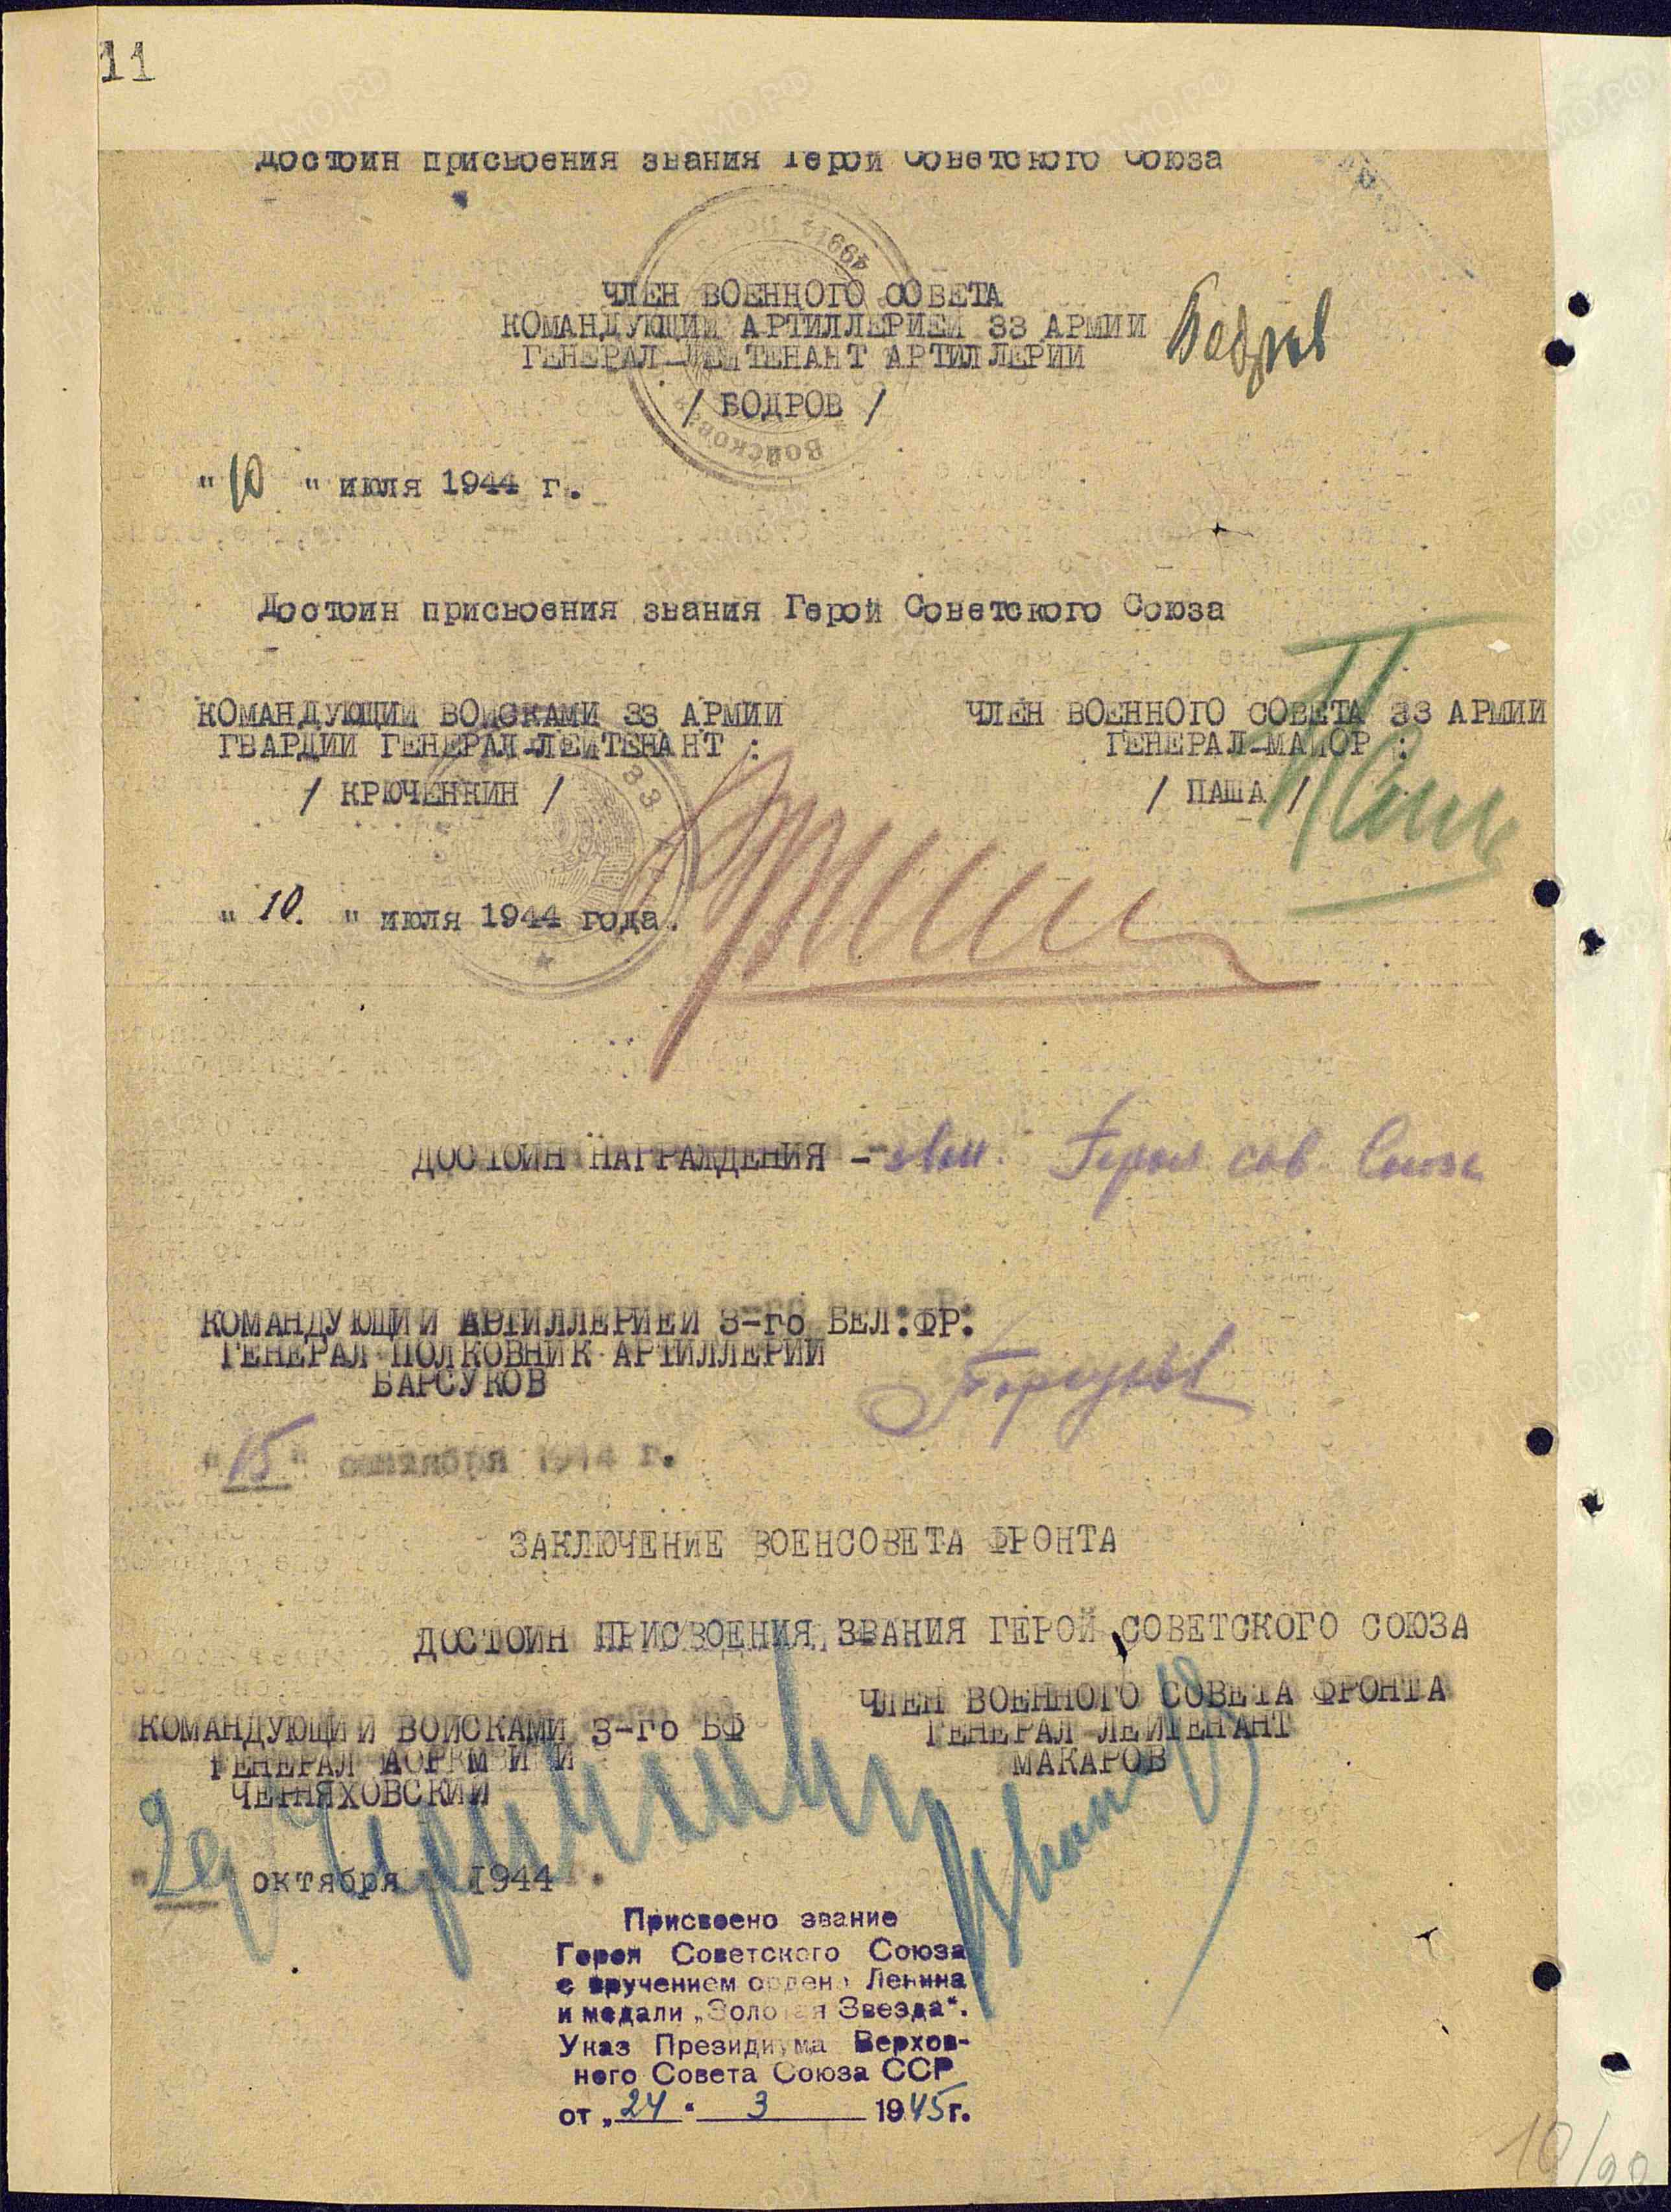 11
Достоин присвоения звания Герой Советского Союза
ЧЛЕН ВОЕННОГО СОВЕТА
КОМАНДУЮЩИЙ АРТИЛЛЕРИЕЙ 33 АРМИИ
ГЕНЕРАЛ-ЛЕЙТЕНАНТ АРТИЛЛЕРИИ
/ БОДРОВ /
Бодров
" 10 " июля 1944 г.
Достоин присвоения звания Герой Советского Союза
КОМАНДУЮЩИЙ ВОЙСКАМИ 33 АРМИИ
ГВАРДИИ ГЕНЕРАЛ-ЛЕЙТЕНАНТ :
/ КРЮЧЕНКИН /
ЧЛЕН ВОЕННОГО СОВЕТА 33 АРМИИ
ГЕНЕРАЛ-МАЙОР :
/ ПАША /
" 10. " июля 1944 года.
ДОСТОИН НАГРАЖДЕНИЯ - Героя сов. Союза
КОМАНДУЮЩИЙ АРТИЛЛЕРИЕЙ 3-го БЕЛ:ФР:
ГЕНЕРАЛ ПОЛКОВНИК АРТИЛЛЕРИИ
БАРСУКОВ
"15" 1944 г.
ЗАКЛЮЧЕНИЕ ВОЕНСОВЕТА ФРОНТА
ДОСТОИН ПРИСВОЕНИЯ ЗВАНИЯ ГЕРОЙ СОВЕТСКОГО СОЮЗА
КОМАНДУЮЩИЙ ВОЙСКАМИ 3-го БФ
ГЕНЕРАЛ АРМИИ
ЧЕРНЯХОВСКИЙ
ЧЛЕН ВОЕННОГО СОВЕТА ФРОНТА
ГЕНЕРАЛ ЛЕЙТЕНАНТ
МАКАРОВ
октября 1944
Присвоено звание
Героя Советского Союза
с вручением ордена Ленина
и медали „Золотая Звезда".
Указ Президиума Верхов-
ного Совета Союза ССР
от „24" 3 1945г.